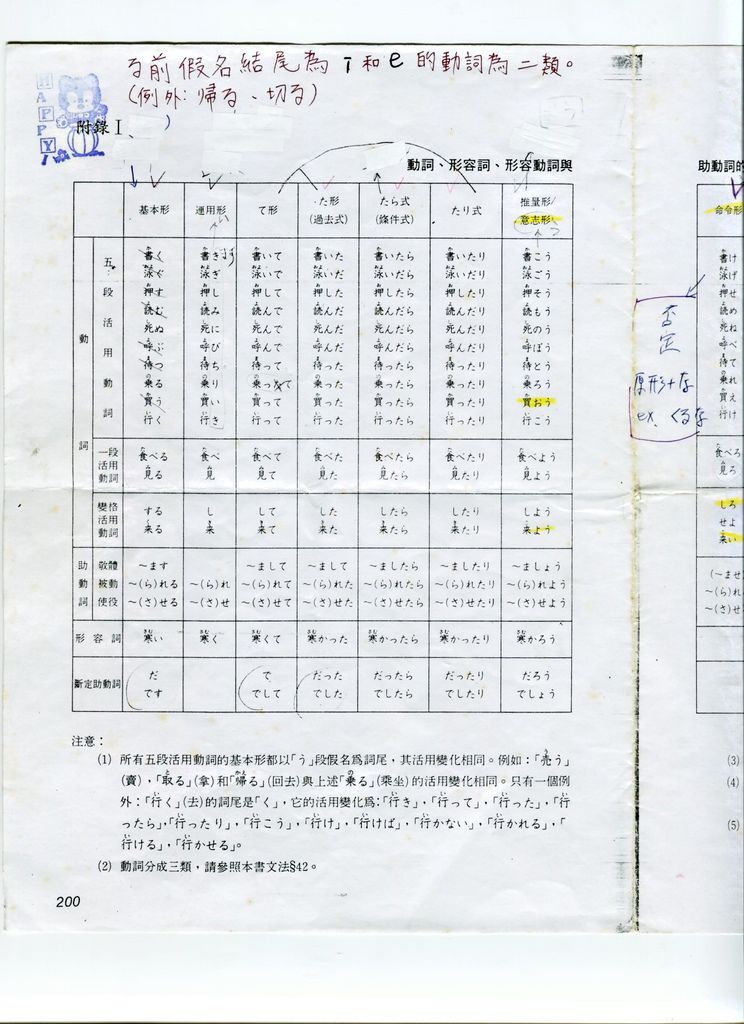 る前假名結尾為 i 和 e 的動詞為二類。
(例外: 帰る、切る)
HAPPY
附錄 I
動詞、形容詞、形容動詞與
助動詞的
基本形 連用形 て形 た形(過去式) たら式(條件式) たり式 推量形/意志形 命令形
動詞
五段活用動詞
書く 書き 書いて 書いた 書いたら 書いたり 書こう 書け
泳ぐ 泳ぎ 泳いで 泳いだ 泳いだら 泳いだり 泳ごう 泳げ
押す 押し 押して 押した 押したら 押したり 押そう 押せ
読む 読み 読んで 読んだ 読んだら 読んだり 読もう 読め
死ぬ 死に 死んで 死んだ 死んだら 死んだり 死のう 死ね
呼ぶ 呼び 呼んで 呼んだ 呼んだら 呼んだり 呼ぼう 呼べ
待つ 待ち 待って 待った 待ったら 待ったり 待とう 待て
乗る 乗り 乗って 乗った 乗ったら 乗ったり 乗ろう 乗れ
買う 買い 買って 買った 買ったら 買ったり 買おう 買え
行く 行き 行って 行った 行ったら 行ったり 行こう 行け
否定
原形+な
ex. くるな
一段活用動詞
食べる 食べ 食べて 食べた 食べたら 食べたり 食べよう 食べろ
見る 見 見て 見た 見たら 見たり 見よう 見ろ
變格活用動詞
する し して した したら したり しよう しろ
せよ
来る 来 来て 来た 来たら 来たり 来よう 来い
助動詞
敬體 ~ます ~まして ~まして ~ましたら ~ましたり ~ましょう (~ませ
被動 ~(ら)れる ~(ら)れ ~(ら)れて ~(ら)れた ~(ら)れたら ~(ら)れたり ~(ら)れよう ~(ら)れ
使役 ~(さ)せる ~(さ)せ ~(さ)せて ~(さ)せた ~(さ)せたら ~(さ)せたり ~(さ)せよう ~(さ)せ
形容詞 寒い 寒く 寒くて 寒かった 寒かったら 寒かったり 寒かろう
斷定助動詞
だ で だった だったら だったり だろう
です でして でした でしたら でしたり でしょう
注意:
(1) 所有五段活用動詞的基本形都以「う」段假名爲詞尾,其活用變化相同。例如:「売う」
(賣),「取る」(拿)和「帰る」(回去)與上述「乗る」(乘坐)的活用變化相同。只有一個例
外:「行く」(去)的詞尾是「く」,它的活用變化爲:「行き」,「行って」,「行った」,「行
ったら」,「行ったり」,「行こう」,「行け」,「行けば」,「行かない」,「行かれる」,「
行ける」,「行かせる」。
(2) 動詞分成三類,請參照本書文法§42。
(3)
(4)
(5)
200